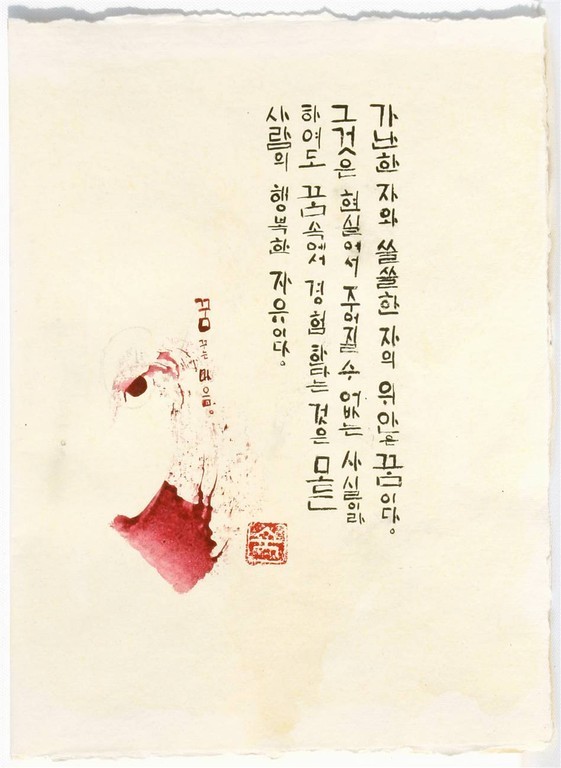 가난한 자와 쓸쓸한 자의 위안은 꿈이다.
그것은 현실에서 주어질 수 없는 사실이라
하여도 꿈속에서 경험한다는 것은 모든
사람의 행복한 자유이다.
꿈꾸는 마음.